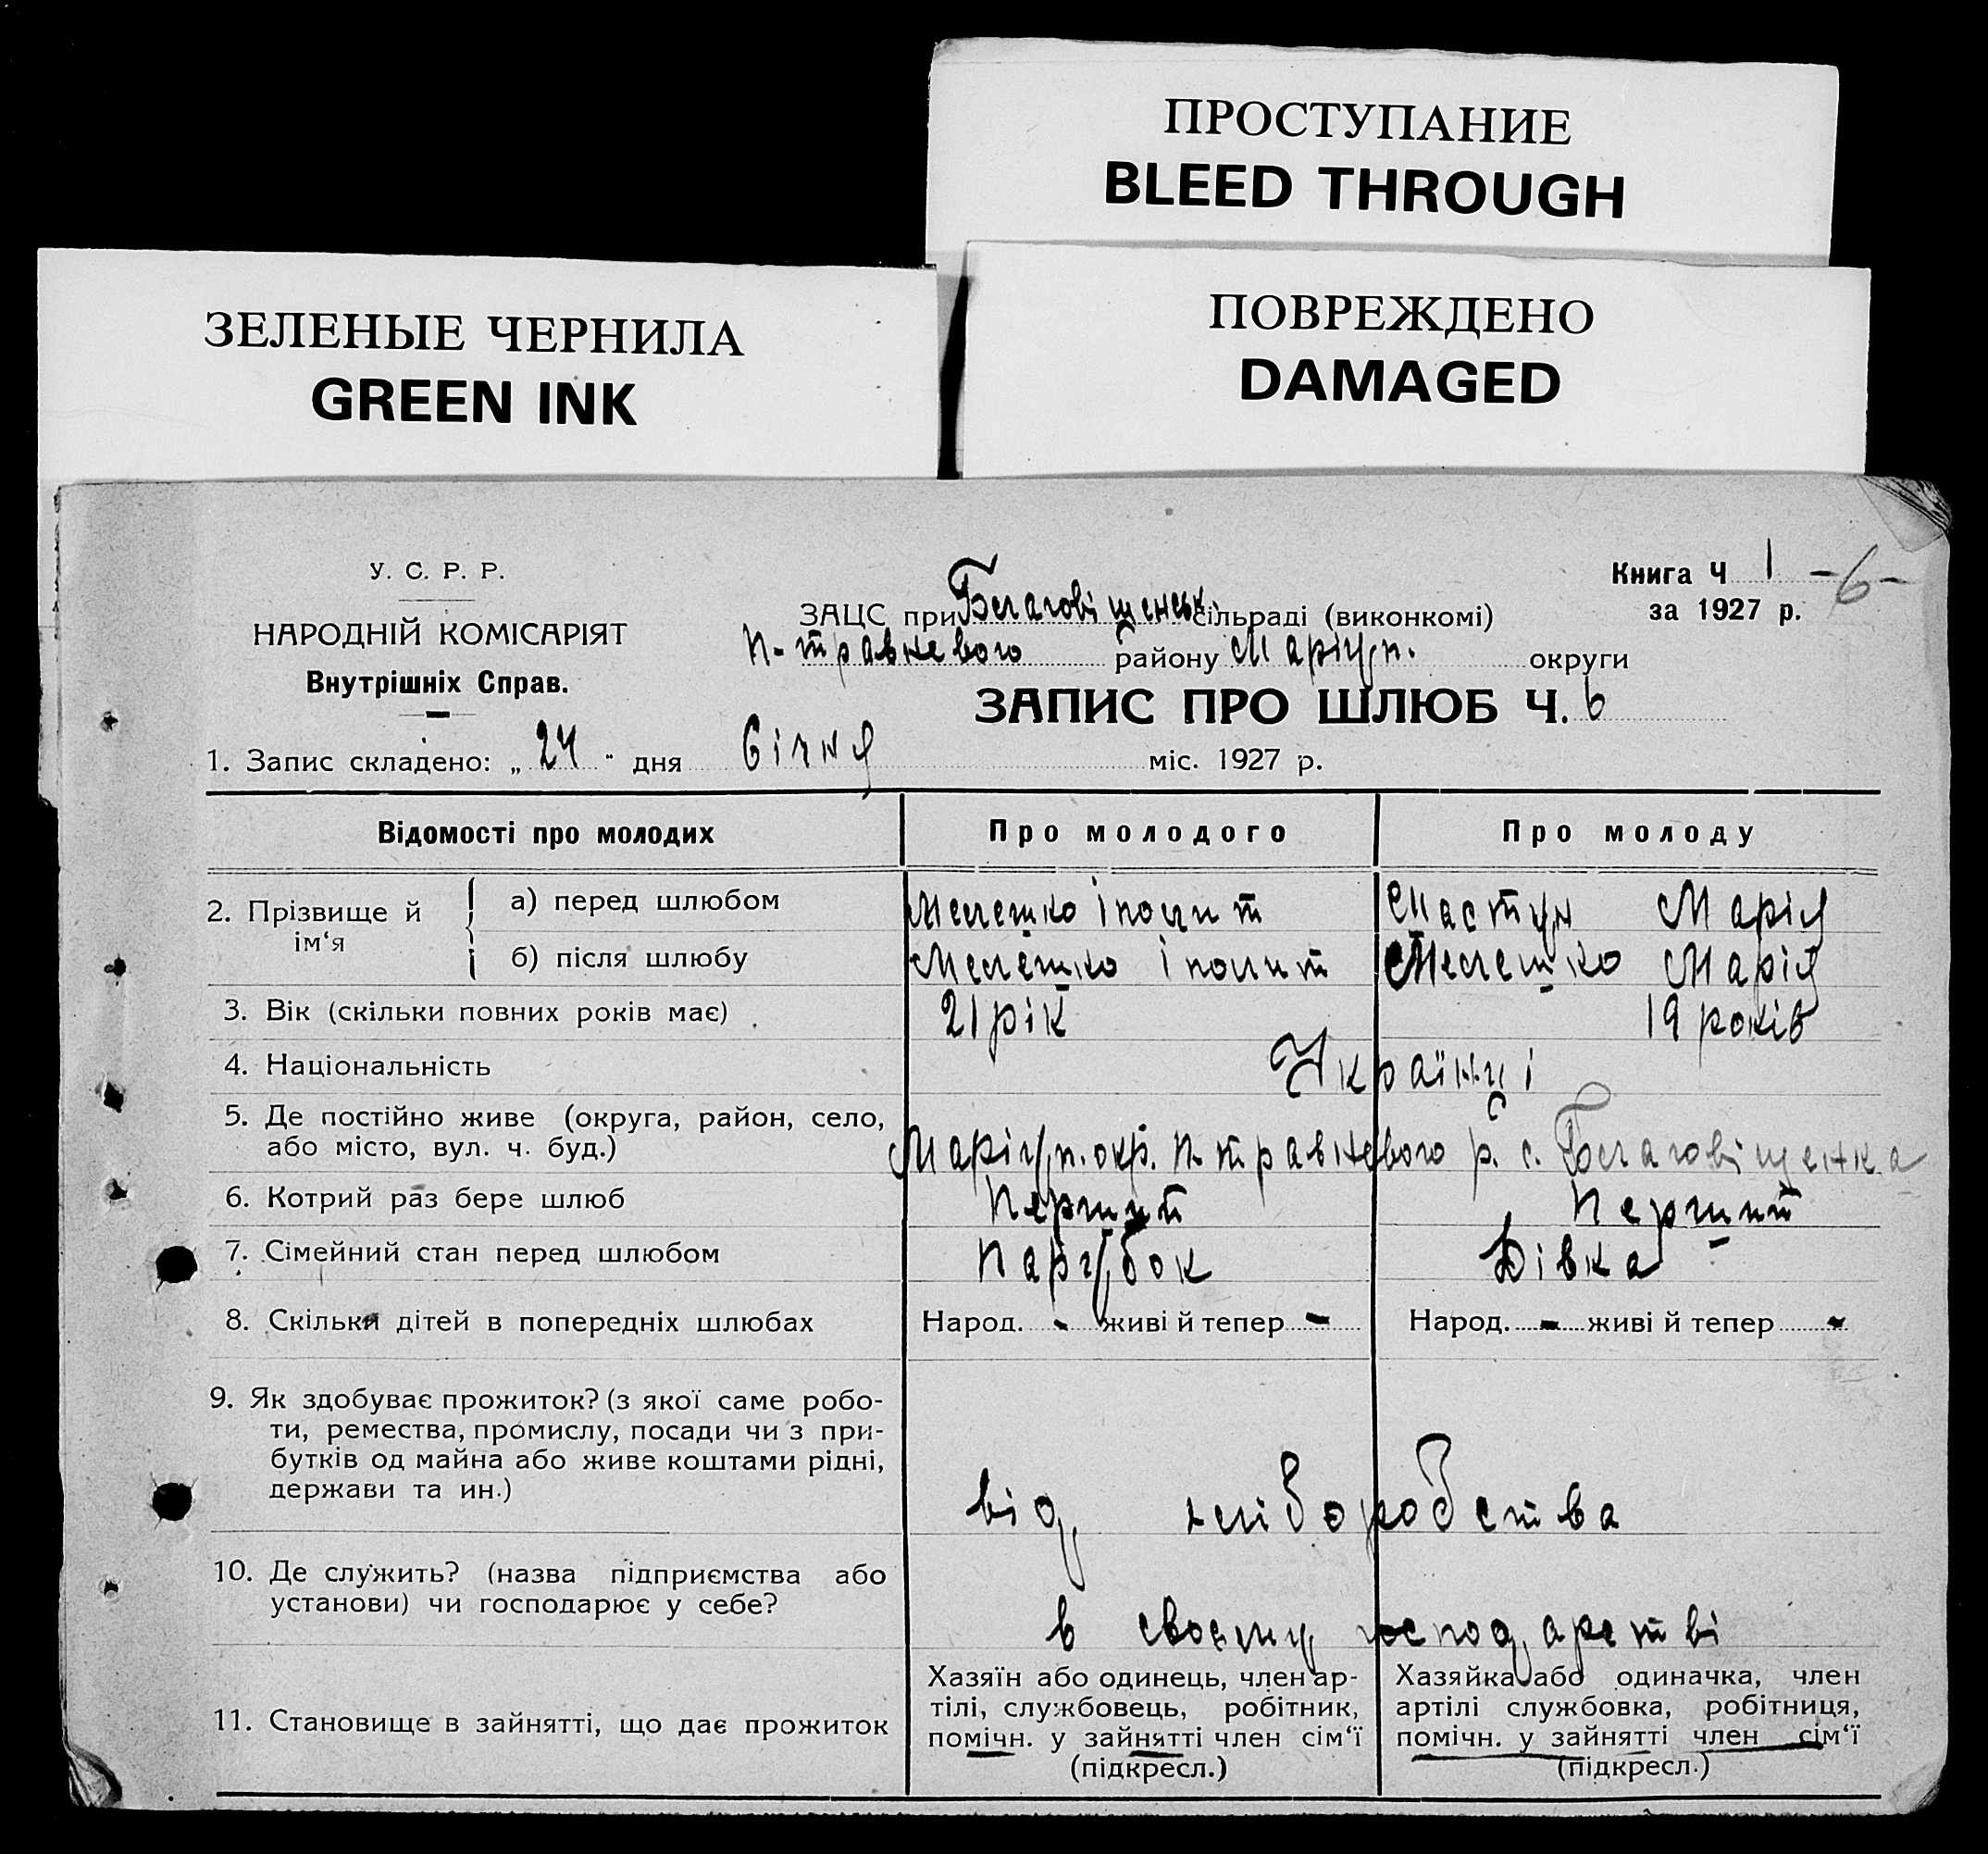 ПРОСТУПАНИЕ
BLEED THROUGH
ЗЕЛЕНЫЕ ЧЕРНИЛА
GREEN INK
ПОВРЕЖДЕНО
DAMAGED
У. С. Р. Р.
НАРОДНІЙ КОМІСАРІЯТ
Внутрішніх Справ.
Книга Ч 1 -6-
за 1927 р.
ЗАЦС при Благовіщенськ. сільраді (виконкомі)
П-травневого району Маріуп. округи
ЗАПИС ПРО ШЛЮБ Ч. 6
1. Запис складено: „ 24 " дня Січня міс. 1927 р.
Відомості про молодих Про молодого Про молоду
2. Прізвище й ім‘я
а) перед шлюбом Мелешко Іполит Смастун Марія
б) після шлюбу Мелешко Іполит Мелешко Марія
3. Вік (скільки повних років має) 21 рік 19 років
4. Національність Українці
5. Де постійно живе (округа, район, село,
або місто, вул. ч. буд.) Маріуп. окр. П-травневого р. с. Благовіщенка
6. Котрий раз бере шлюб Перший Перший
7. Сімейний стан перед шлюбом Парубок Дівка
8. Скільки дітей в попередніх шлюбах Народ. - живі й тепер - Народ. - живі й тепер -
9. Як здобуває прожиток? (з якої саме робо-
ти, ремества, промислу, посади чи з при-
бутків од майна або живе коштами рідні,
держави та ин.) від хліборобства
10. Де служить? (назва підприємства або
установи) чи господарює у себе? в своєму господарстві
11. Становище в зайнятті, що дає прожиток
Хазяїн або одинець, член ар-
тілі, службовець, робітник,
помічн. у зайнятті член сім‘ї
(підкресл.)
Хазяйка або одиначка, член
артілі службовка, робітниця,
помічн. у зайнятті член сім‘ї
(підкресл.)